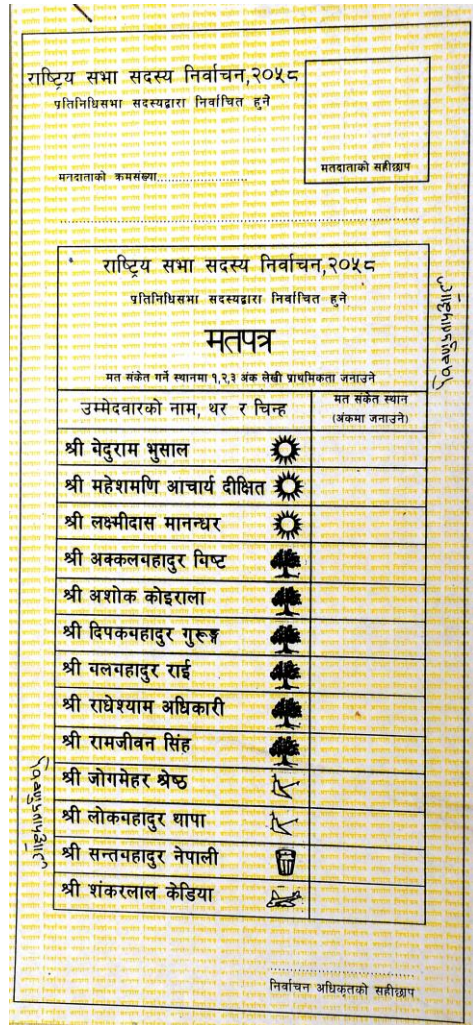 राष्ट्रिय सभा सदस्य निर्वाचन,२०५८
प्रतिनिधिसभा सदस्यद्वारा निर्वाचित हुने
मतदाताको सहीछाप
मनदाताको क्रमसंख्या........................
राष्ट्रिय सभा सदस्य निर्वाचन,२०५८
प्रतिनिधिसभा सदस्यद्वारा निर्वाचित हुने
मतपत्र
मत संकेत गर्ने स्थानमा १,२,३ अंक लेखी प्राथमिकता जनाउने
उम्मेदवारको नाम, थर र चिन्ह
मत संकेत स्थान
(अंकमा जनाउने)
श्री बेदुराम भुसाल
श्री महेशमणि आचार्य दीक्षित
श्री लक्ष्मीदास मानन्धर
श्री अक्कलबहादुर बिष्ट
श्री अशोक कोइराला
श्री दिपकबहादुर गुरूङ्ग
श्री बलबहादुर राई
श्री राधेश्याम अधिकारी
श्री रामजीवन सिंह
श्री जोगमेहर श्रेष्ठ
श्री लोकबहादुर थापा
श्री सन्तबहादुर नेपाली
श्री शंकरलाल केडिया
निर्वाचन अधिकृतको सहीछाप